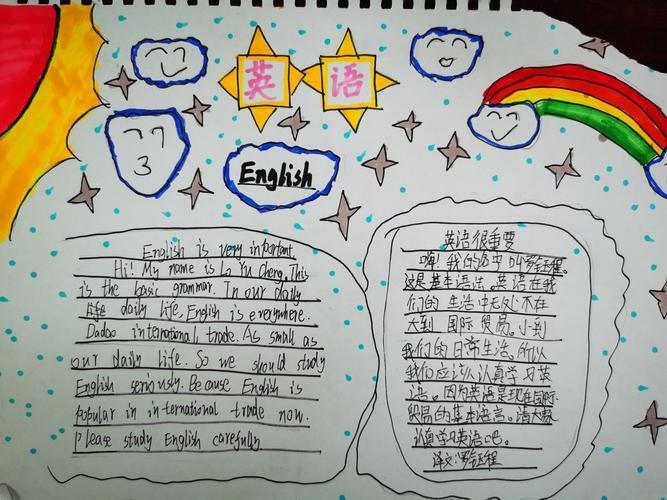 英语
English
English is very important
Hi! My name is Lo Yu Cheng. This
is the basic grammar. In our daily
life daily life, English is everywhere.
Dadao international trade. As small as
our daily life. So we should study
English seriously. Because English is
popular in international trade now.
Please study English carefully
英语很重要
嗨!我的名字叫罗钰程。
这是基本语法。英语在我
们的生活中无处不在
大到 国际贸易。小到
我们的日常生活。所以
我们应该认真学习英
语。因为英语是现在国际
贸易的基本语言。请大家
认真学习英语吧。
译文:罗钰程